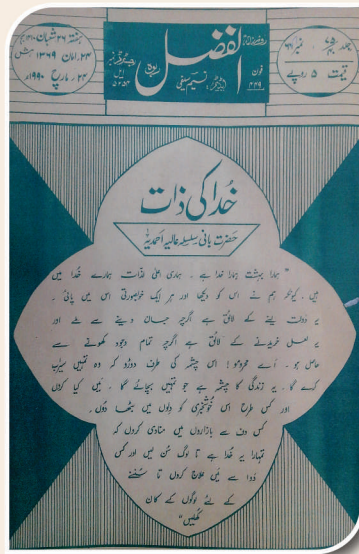 جلد ۷۵ نمبر ۶۹
قیمت ۵ روپے
روزنامہ
الفضل
ربوہ
ایڈیٹر: نسیم سیفی
فون
۴۴۹
رجسٹرڈ نمبر
ایل
۵۲۵۴
ہفتہ ۲۶ شعبان
۲۴۔ امان ۱۳۶۹ ہش
۲۴۔ مارچ ۱۹۹۰ء
خدا کی ذات
حضرت بانی سلسلہ عالیہ احمدیہ
"ہمارا بہشت ہمارا خدا ہے۔ ہماری اعلیٰ لذات ہمارے خدا میں
ہیں۔ کیونکہ ہم نے اس کو دیکھا اور ہر ایک خوبصورتی اس میں پائی۔
یہ دولت لینے کے لائق ہے اگرچہ جان دینے سے ملے اور
یہ لعل خریدنے کے لائق ہے اگرچہ تمام وجود کھونے سے
حاصل ہو۔ اے محرومو! اس چشمہ کی طرف دوڑو کہ وہ تمہیں سیراب
کرے گا۔ یہ زندگی کا چشمہ ہے جو تمہیں بچائے گا۔ میں کیا کروں
اور کس طرح اس خوشخبری کو دلوں میں بٹھا دوں۔
کس دف سے بازاروں میں منادی کروں کہ
تمہارا یہ خدا ہے تا لوگ سن لیں اور کس
دوا سے میں علاج کروں تا سننے
کے لئے لوگوں کے کان
کھلیں"